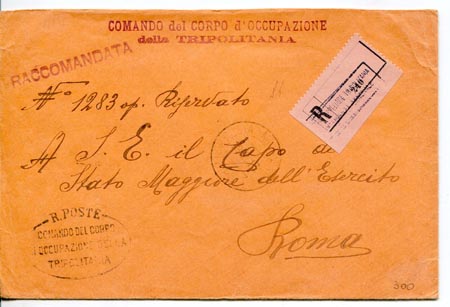 COMANDO del CORPO d'OCCUPAZIONE
della TRIPOLITANIA
RACCOMANDATA
R
240
N.º 1283 op. Riservato
A S. E. il Capo di
Stato Maggiore dell'Esercito
Roma
R. POSTE
COMANDO DEL CORPO
OCCUPAZIONE DELLA
TRIPOLITANIA
300